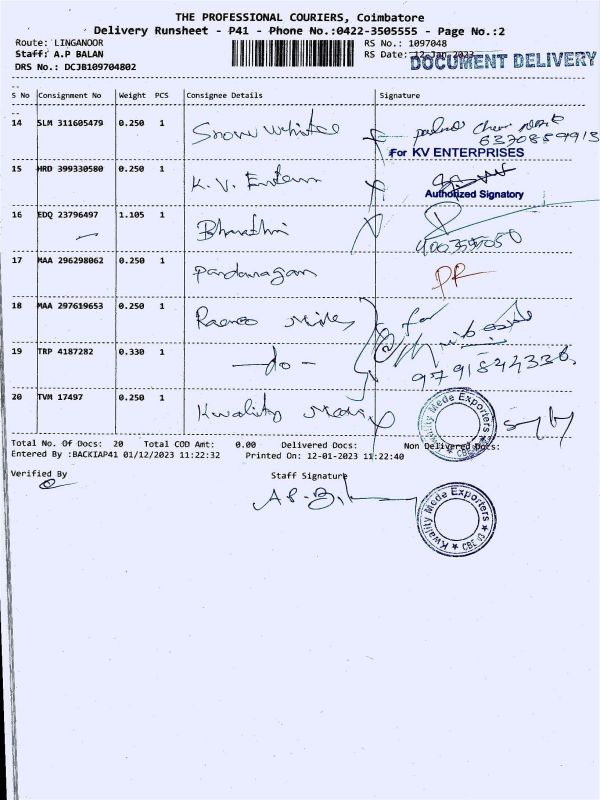 THE PROFESSIONAL COURIERS, Coimbatore
Delivery Runsheet - P41 - Phone No.:0422-3505555 - Page No.:2
Route: LINGANOOR
RS No.: 1097048
Staff: A.P BALAN
RS Date: 12-Jan-2023
DOCUMENT DELIVERY
DRS No.: DCJB109704802
S No Consignment No Weight PCS Consignee Details Signature
14 SLM 311605479 0.250 1 Snow white
For KV ENTERPRISES
15 HRD 399330580 0.250 1 K.V. Enterp
Authorized Signatory
16 EDQ 23796497 1.105 1 Bharathi
17 MAA 296298062 0.250 1 Pandaragam PR
18 MAA 297619653 0.250 1 for
19 TRP 4187282 0.330 1 -do-
20 TVM 17497 0.250 1 Kwality Mede
Kwality Mede Exporters CBE
Total No. Of Docs: 20 Total COD Amt: 0.00 Delivered Docs: Non Delivered Docs:
Entered By :BACKIAP41 01/12/2023 11:22:32 Printed On: 12-01-2023 11:22:40
Verified By Staff Signature
Kwality Mede Exporters CBE 03